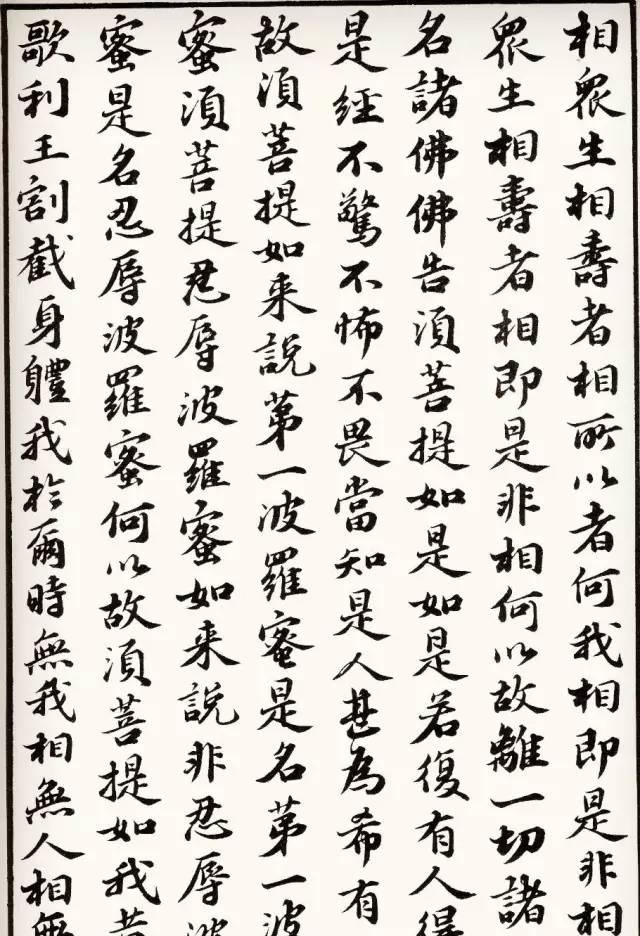 相眾生相壽者相所以者何我相即是非相
眾生相壽者相即是非相何以故離一切諸
名諸佛佛告須菩提如是如是若復有人得
是經不驚不怖不畏當知是人甚為希有
故須菩提如来說第一波羅蜜是名第一波
蜜須菩提忍辱波羅蜜如来說非忍辱波
蜜是名忍辱波羅蜜何以故須菩提如我昔
歌利王割截身體我於爾時無我相無人相無